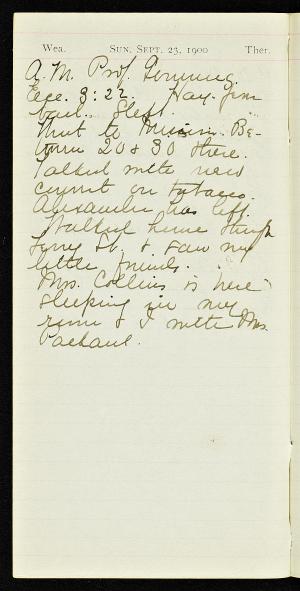 Wea. SUN. SEPT. 23, 1900 Ther.
A. M. Prof. Genung.
Ecc. 3:22. Hay-fever
bad. Slept.
Went to Mission. Be-
tween 20 & 30 there.
Talked with new
convict on tobacco.
Alexander has left.
Walked home through
Ferry St. & saw my
little friends.
Mrs. Collins is here
sleeping in my
room & I with Mrs.